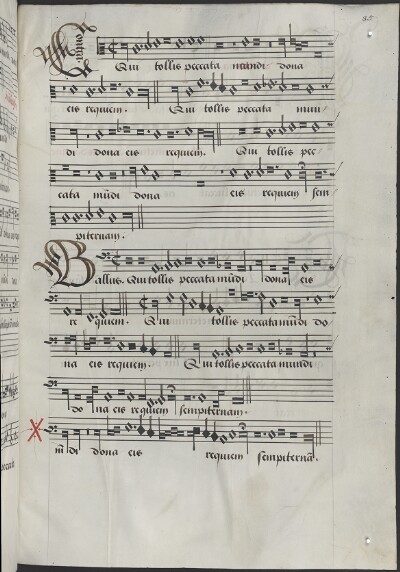 Contra
Qui tollis peccata mundi dona
eis requiem. Qui tollis peccata mun
di dona eis requiem. Qui tollis pec
cata mūdi dona eis requiem sem
piternam.
Bassus. Qui tollis peccata mūdi dona eis
re quiem. Qui tollis peccata mūdi do
na eis requiem. Qui tollis peccata mundi
do na eis requiem sempiternam.
mūdi dona eis requiem sempiternā.